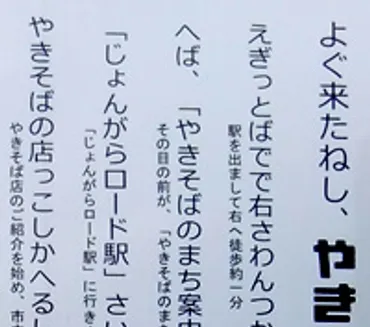 よぐ来たねし、やき
えぎっとばでで右さわんつか
駅を出まして右へ徒歩約一分
へば、「やきそばのまち案内
その目の前が、「やきそばのまち
「じょんがらロード駅」さい
「じょんがらロード駅」に行き
やきそばの店っこしかへるし
やきそば店のご紹介を始め、市